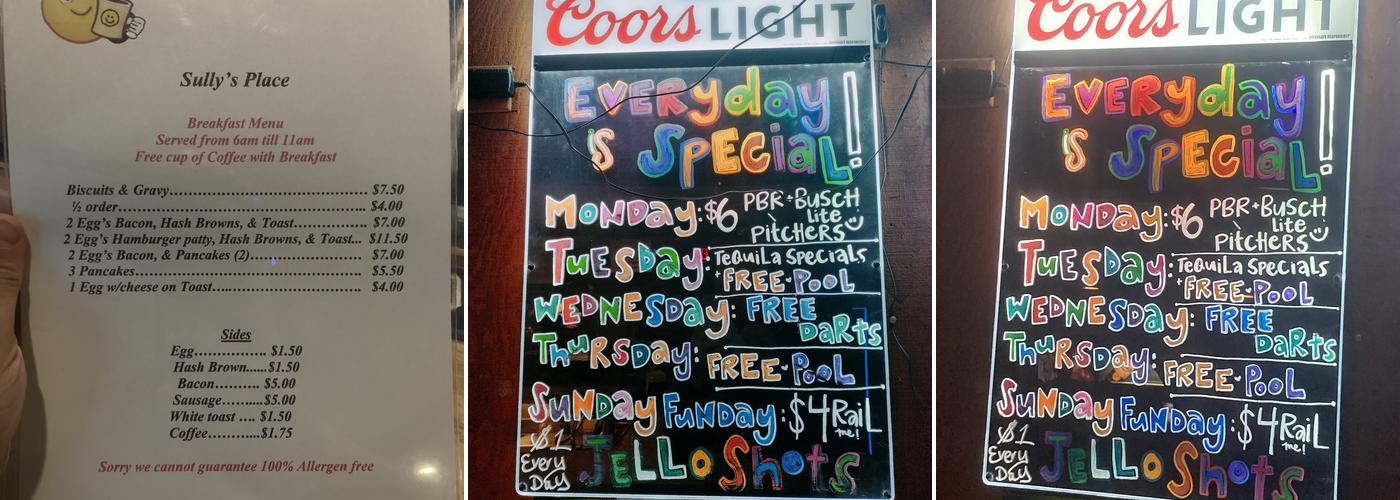 Sully's Place
Breakfast Menu
Served from 6am till 11am
Free cup of Coffee with Breakfast
Biscuits & Gravy.......................................... $7.50
½ order.................................................... $4.00
2 Egg's Bacon, Hash Browns, & Toast................ $7.00
2 Egg's Hamburger patty, Hash Browns, & Toast... $11.50
2 Egg's Bacon, & Pancakes (2)......................... $7.00
3 Pancakes................................................ $5.50
1 Egg w/cheese on Toast................................ $4.00
Sides
Egg................ $1.50
Hash Brown......$1.50
Bacon.......... $5.00
Sausage..........$5.00
White toast .... $1.50
Coffee...........$1.75
Sorry we cannot guarantee 100% Allergen free
Coors LIGHT
EVERyday
is SPECiaL!
MONDAY: $6 PBR + BUSCH
Lite
PitCHERS
TuESday: TEQuiLa SPECiaLS
+ FREE POOL
WEDNESday: FREE
DaRts
ThuRSday: FREE POOL
SuNDay FuNDay: $4 RaiL
me!
$1
EvERy
Day
JELLO ShOts
Coors LIGHT
EVERyday
is SPECiaL!
MONDAY: $6 PBR + BUSCH
Lite
PitCHERS
TuESday: TEQuiLa SPECiaLS
+ FREE POOL
WEDNESday: FREE
DaRts
ThuRSday: FREE POOL
SuNDay FuNDay: $4 RaiL
me!
$1
EvERy
Day
JELLO ShOts